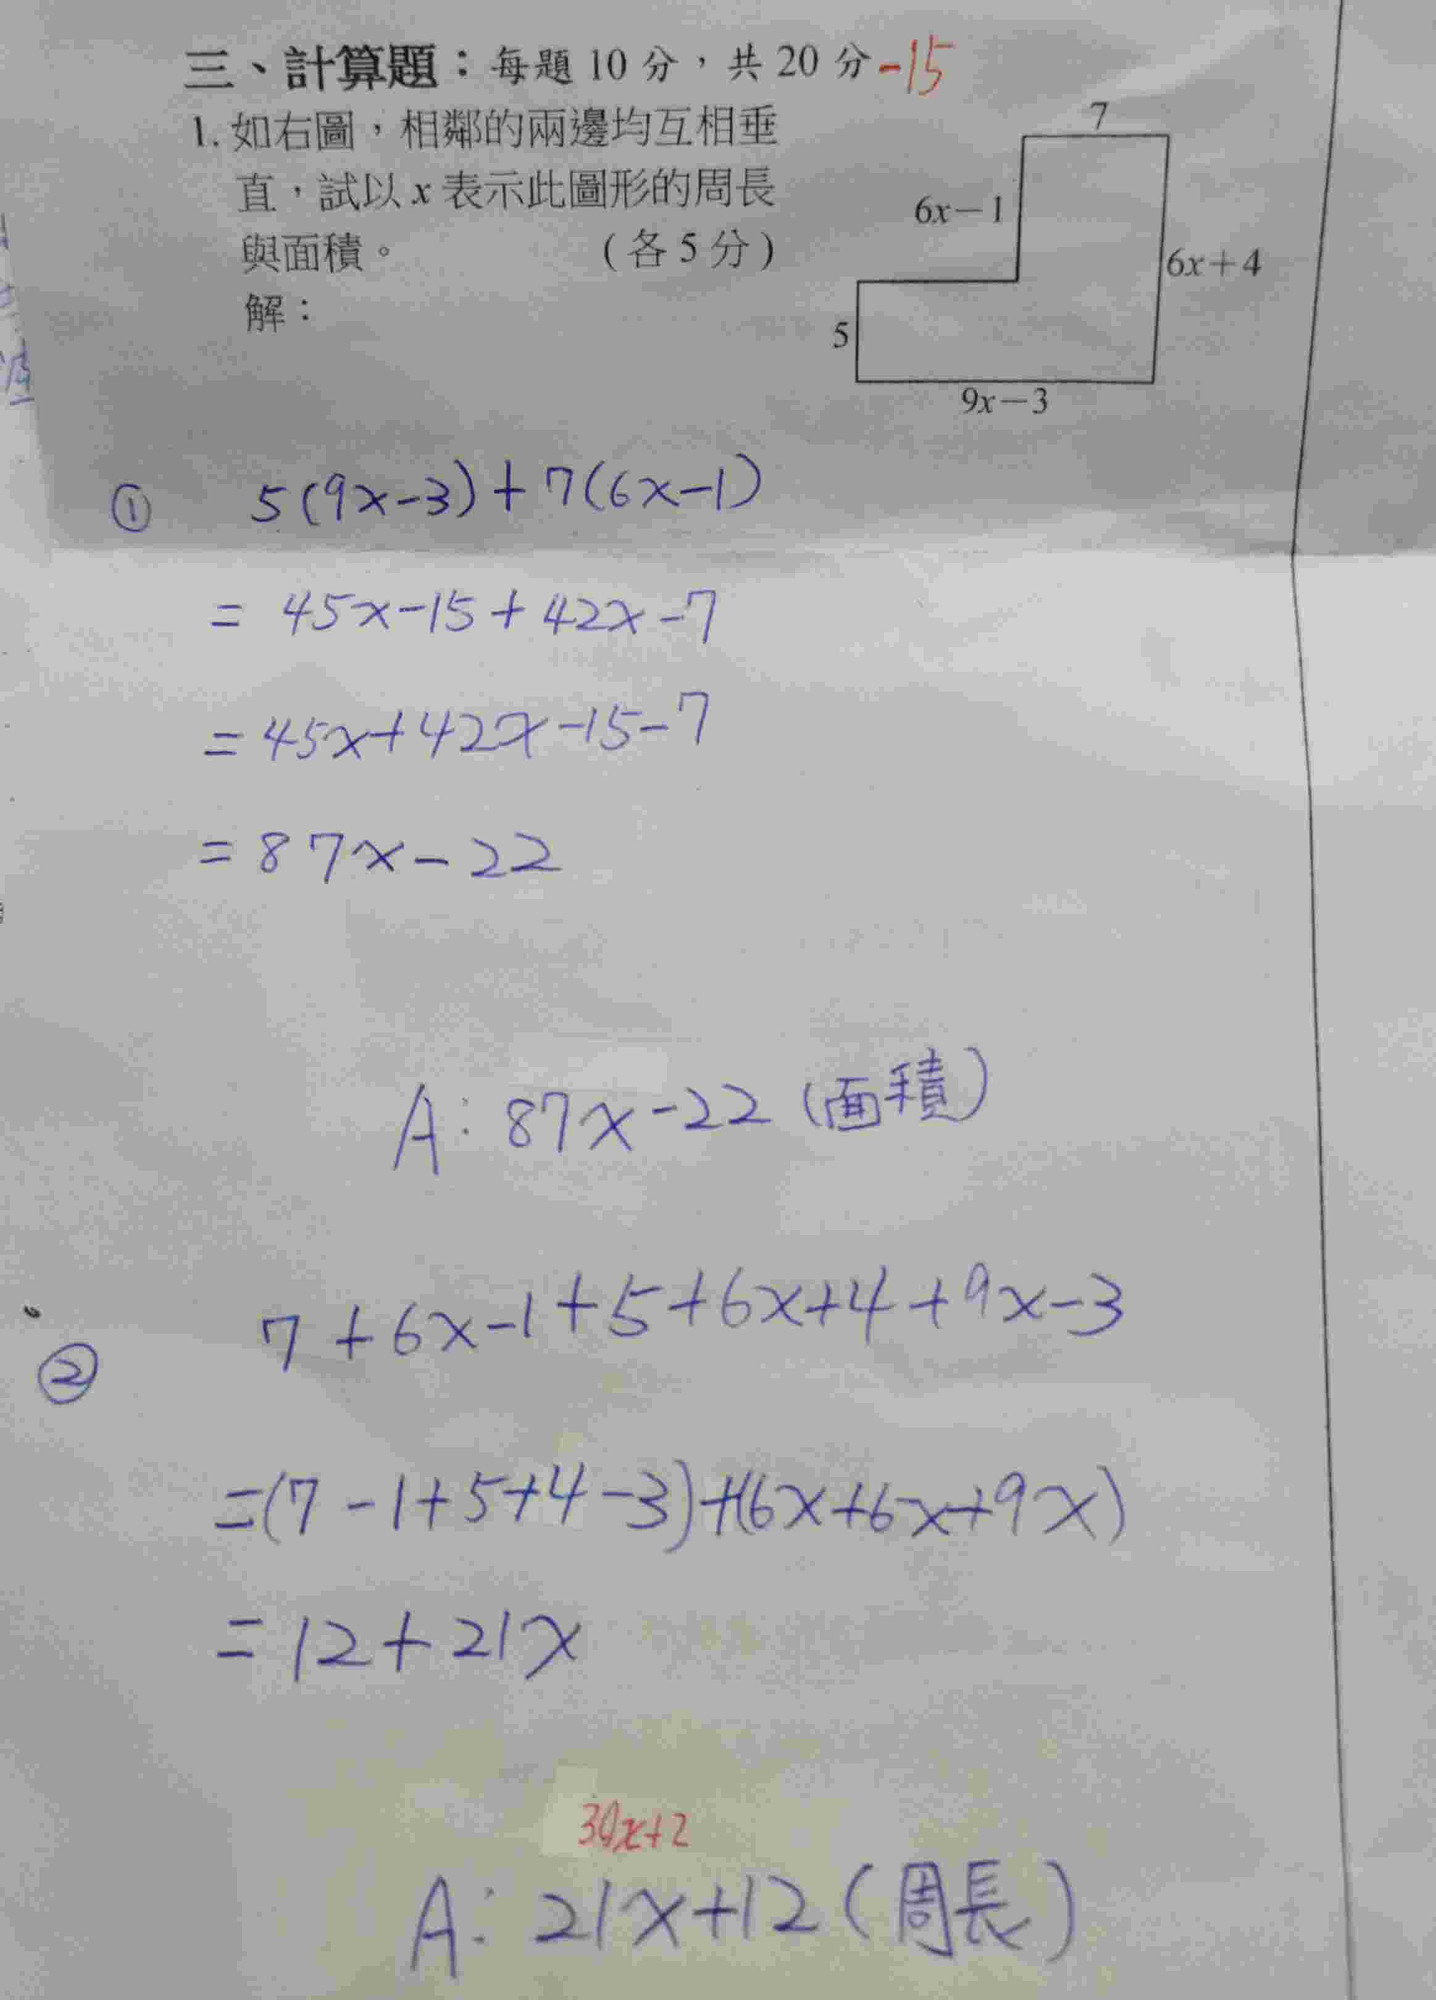 三、計算題：每題 10 分，共 20 分 -15
1. 如右圖，相鄰的兩邊均互相垂
直，試以 x 表示此圖形的周長
與面積。 （各 5 分）
解：
7
6x－1
6x＋4
5
9x－3
① 5(9x-3)+7(6x-1)
= 45x-15+42x-7
=45x+42x-15-7
=87x-22
A: 87x-22 (面積)
② 7+6x-1+5+6x+4+9x-3
=(7-1+5+4-3)+(6x+6x+9x)
=12+21x
30x+2
A: 21x+12 (周長)